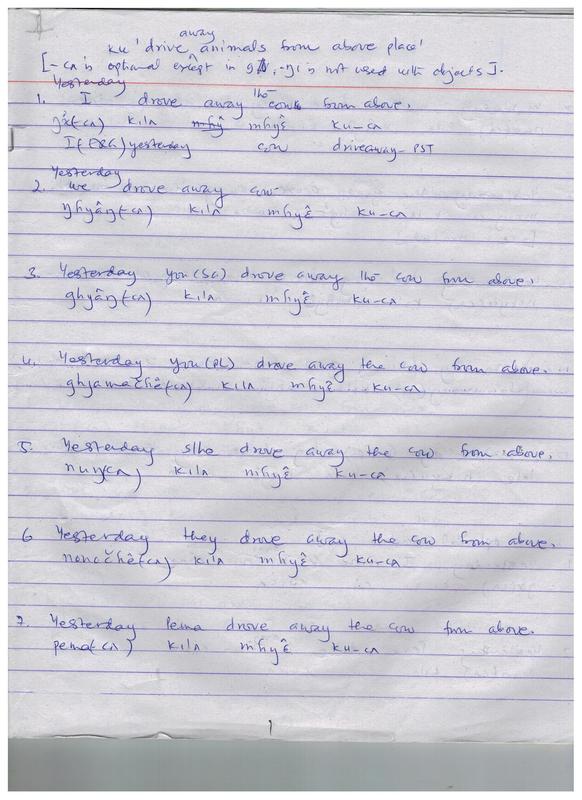 away
ku 'drive animals from above place'
[-cʌ is optional except in 9, -ji is not used with objects].
Yesterday
1. I drove away the cow from above.
(-cʌ) kilʌ mɦyɛ̂ ku-cʌ
I(ERG) yesterday cow driveaway-PST
Yesterday
2. we drove away cow
ŋɦyâŋ(-cʌ) kilʌ mɦyɛ̂ ku-cʌ
3. Yesterday you(SG) drove away the cow from above.
gɦyâŋ(-cʌ) kilʌ mɦyɛ̂ ku-cʌ
4. Yesterday you(PL) drove away the cow from above.
gɦyamačɦê(-cʌ) kilʌ mɦyɛ̂ ku-cʌ
5. Yesterday s/he drove away the cow from above.
nuŋ(cʌ) kilʌ mɦyɛ̂ ku-cʌ
6 Yesterday they drove away the cow from above.
nonočɦê(-cʌ) kilʌ mɦyɛ̂ ku-cʌ
7. Yesterday Pema drove away the cow from above.
pema(-cʌ) kilʌ mɦyɛ̂ ku-cʌ
1